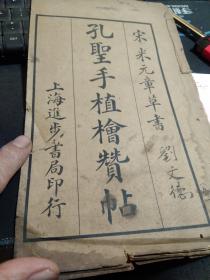 宋米元章草書
孔聖手植檜贊帖
上海進步書局印行
劉文德